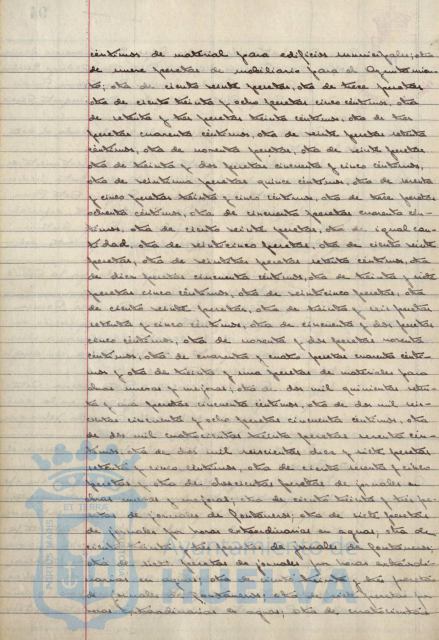 céntimos de material para edificios municipales; otra
de nueve pesetas de mobiliario para el Ayuntamien-
to; otra de ciento veinte pesetas, otra de trece pesetas
otra de ciento treinta y ocho pesetas cinco céntimos, otra
de setenta y tres pesetas treinta céntimos, otra de tres
pesetas cuarenta céntimos, otra de veinte pesetas setenta
céntimos, otra de noventa pesetas, otra de veinte pesetas
otra de treinta y dos pesetas cincuenta y cinco céntimos,
otra de veintiuna pesetas quince céntimos, otra de
y cinco pesetas treinta y cinco céntimos, otra de trece pesetas
ochenta céntimos, otra de cincuenta pesetas cuarenta cénti-
mos, otra de ciento veinte pesetas, otra de igual can-
tidad, otra de veinticinco pesetas, otra de ciento veinte
pesetas, otra de veintitres pesetas setenta céntimos, otra
de diez pesetas cincuenta céntimos, otra de treinta y siete
pesetas cinco céntimos, otra de veinticinco pesetas, otra
de ciento veinte pesetas, otra de treinta y seis pesetas
setenta y cinco céntimos, otra de cincuenta y dos pesetas
cinco céntimos, otra de noventa y dos pesetas noventa
céntimos, otra de cuarenta y cuatro pesetas cuarenta cénti-
mos y otra de treinta y una pesetas de materiales para
obras nuevas y mejoras; otra de dos mil quinientas seten-
ta y una pesetas cincuenta céntimos, otra de dos mil seis-
cientas cincuenta y ocho pesetas cincuenta céntimos, otra
de dos mil cuatrocientas treinta pesetas sesenta cén-
timos, otra de dos mil seiscientas diez y siete pesetas
setenta y cinco céntimos, otra de ciento sesenta y cinco
pesetas y otra de doscientas pesetas de jornales en
obras nuevas y mejoras; otra de ciento treinta y tres pese-
tas de jornales de fontaneros; otra de siete pesetas
de jornales por horas extraordinarias en aguas; otra de
ciento treinta y tres pesetas de jornales de fontaneros;
otra de siete pesetas de jornales por horas extraordi-
narias en aguas; otra de ciento treinta y tres pesetas
de jornales de fontaneros; otra de siete pesetas por
horas extraordinarias en aguas; otra de cuatrocientas
PORTUS MARIS
ET TERRÆ
Ayuntamiento de
HUELVA